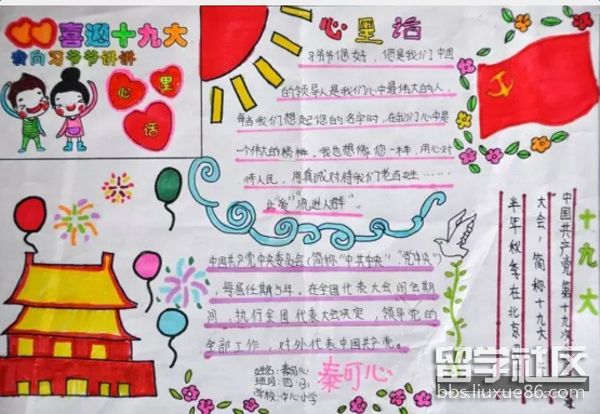 喜迎十九大
我向习爷爷讲讲
心里
话
心里话
习爷爷您好,您是我们中国
的领导人是我们心中最伟大的人,
每当我们想起您的名字时,在我们心中是
一个伟大的榜样,我也想像您一样,用心对
待人民,用真诚对待我们老百姓……
让"爱"流进人群"。
中国共产党中央委员会(简称"中共中央""党中央")
,每届任期5年,在全国代表大会闭会期
间,执行全国代表大会决定,领导党的
全部工作,对外代表中国共产党。
姓名:秦可心
班级:四(3)
学校:中心小学
秦可心
十九大
中国共产党第十九次
大会,简称十九大
半年秋季在北京
留学社区
bbs.liuxue86.com